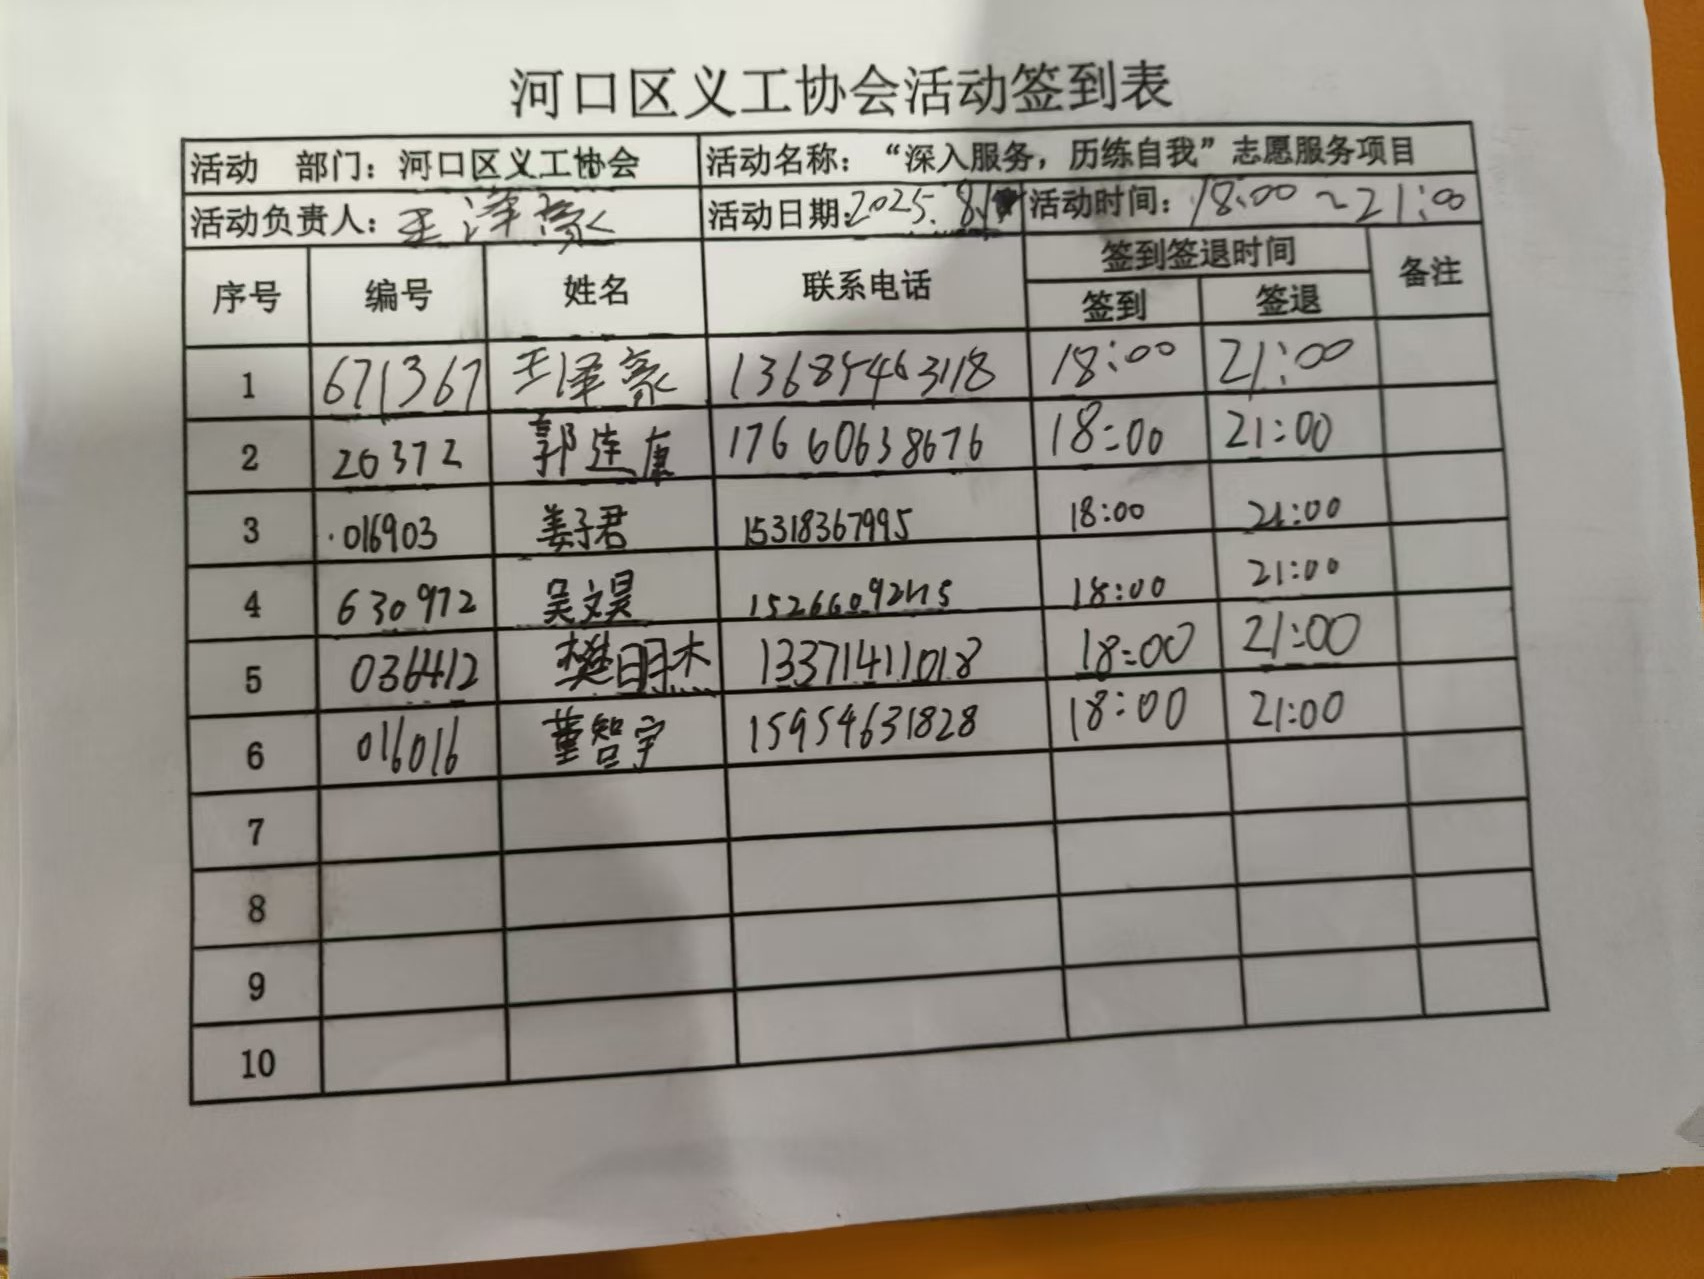 河口区义工协会活动签到表
活动 部门：河口区义工协会 活动名称：“深入服务，历练自我”志愿服务项目
活动负责人：王泽豪 活动日期：2025.8. 活动时间：18:00～21:00
序号 编号 姓名 联系电话 签到签退时间 备注
签到 签退
1 671367 王泽豪 13685463118 18:00 21:00
2 20372 郭连康 17660638676 18:00 21:00
3 016903 姜子君 15318367995 18:00 21:00
4 630972 吴文昊 18:00 21:00
5 036412 樊明杰 13371411018 18:00 21:00
6 016016 董智宇 15954631828 18:00 21:00
7
8
9
10